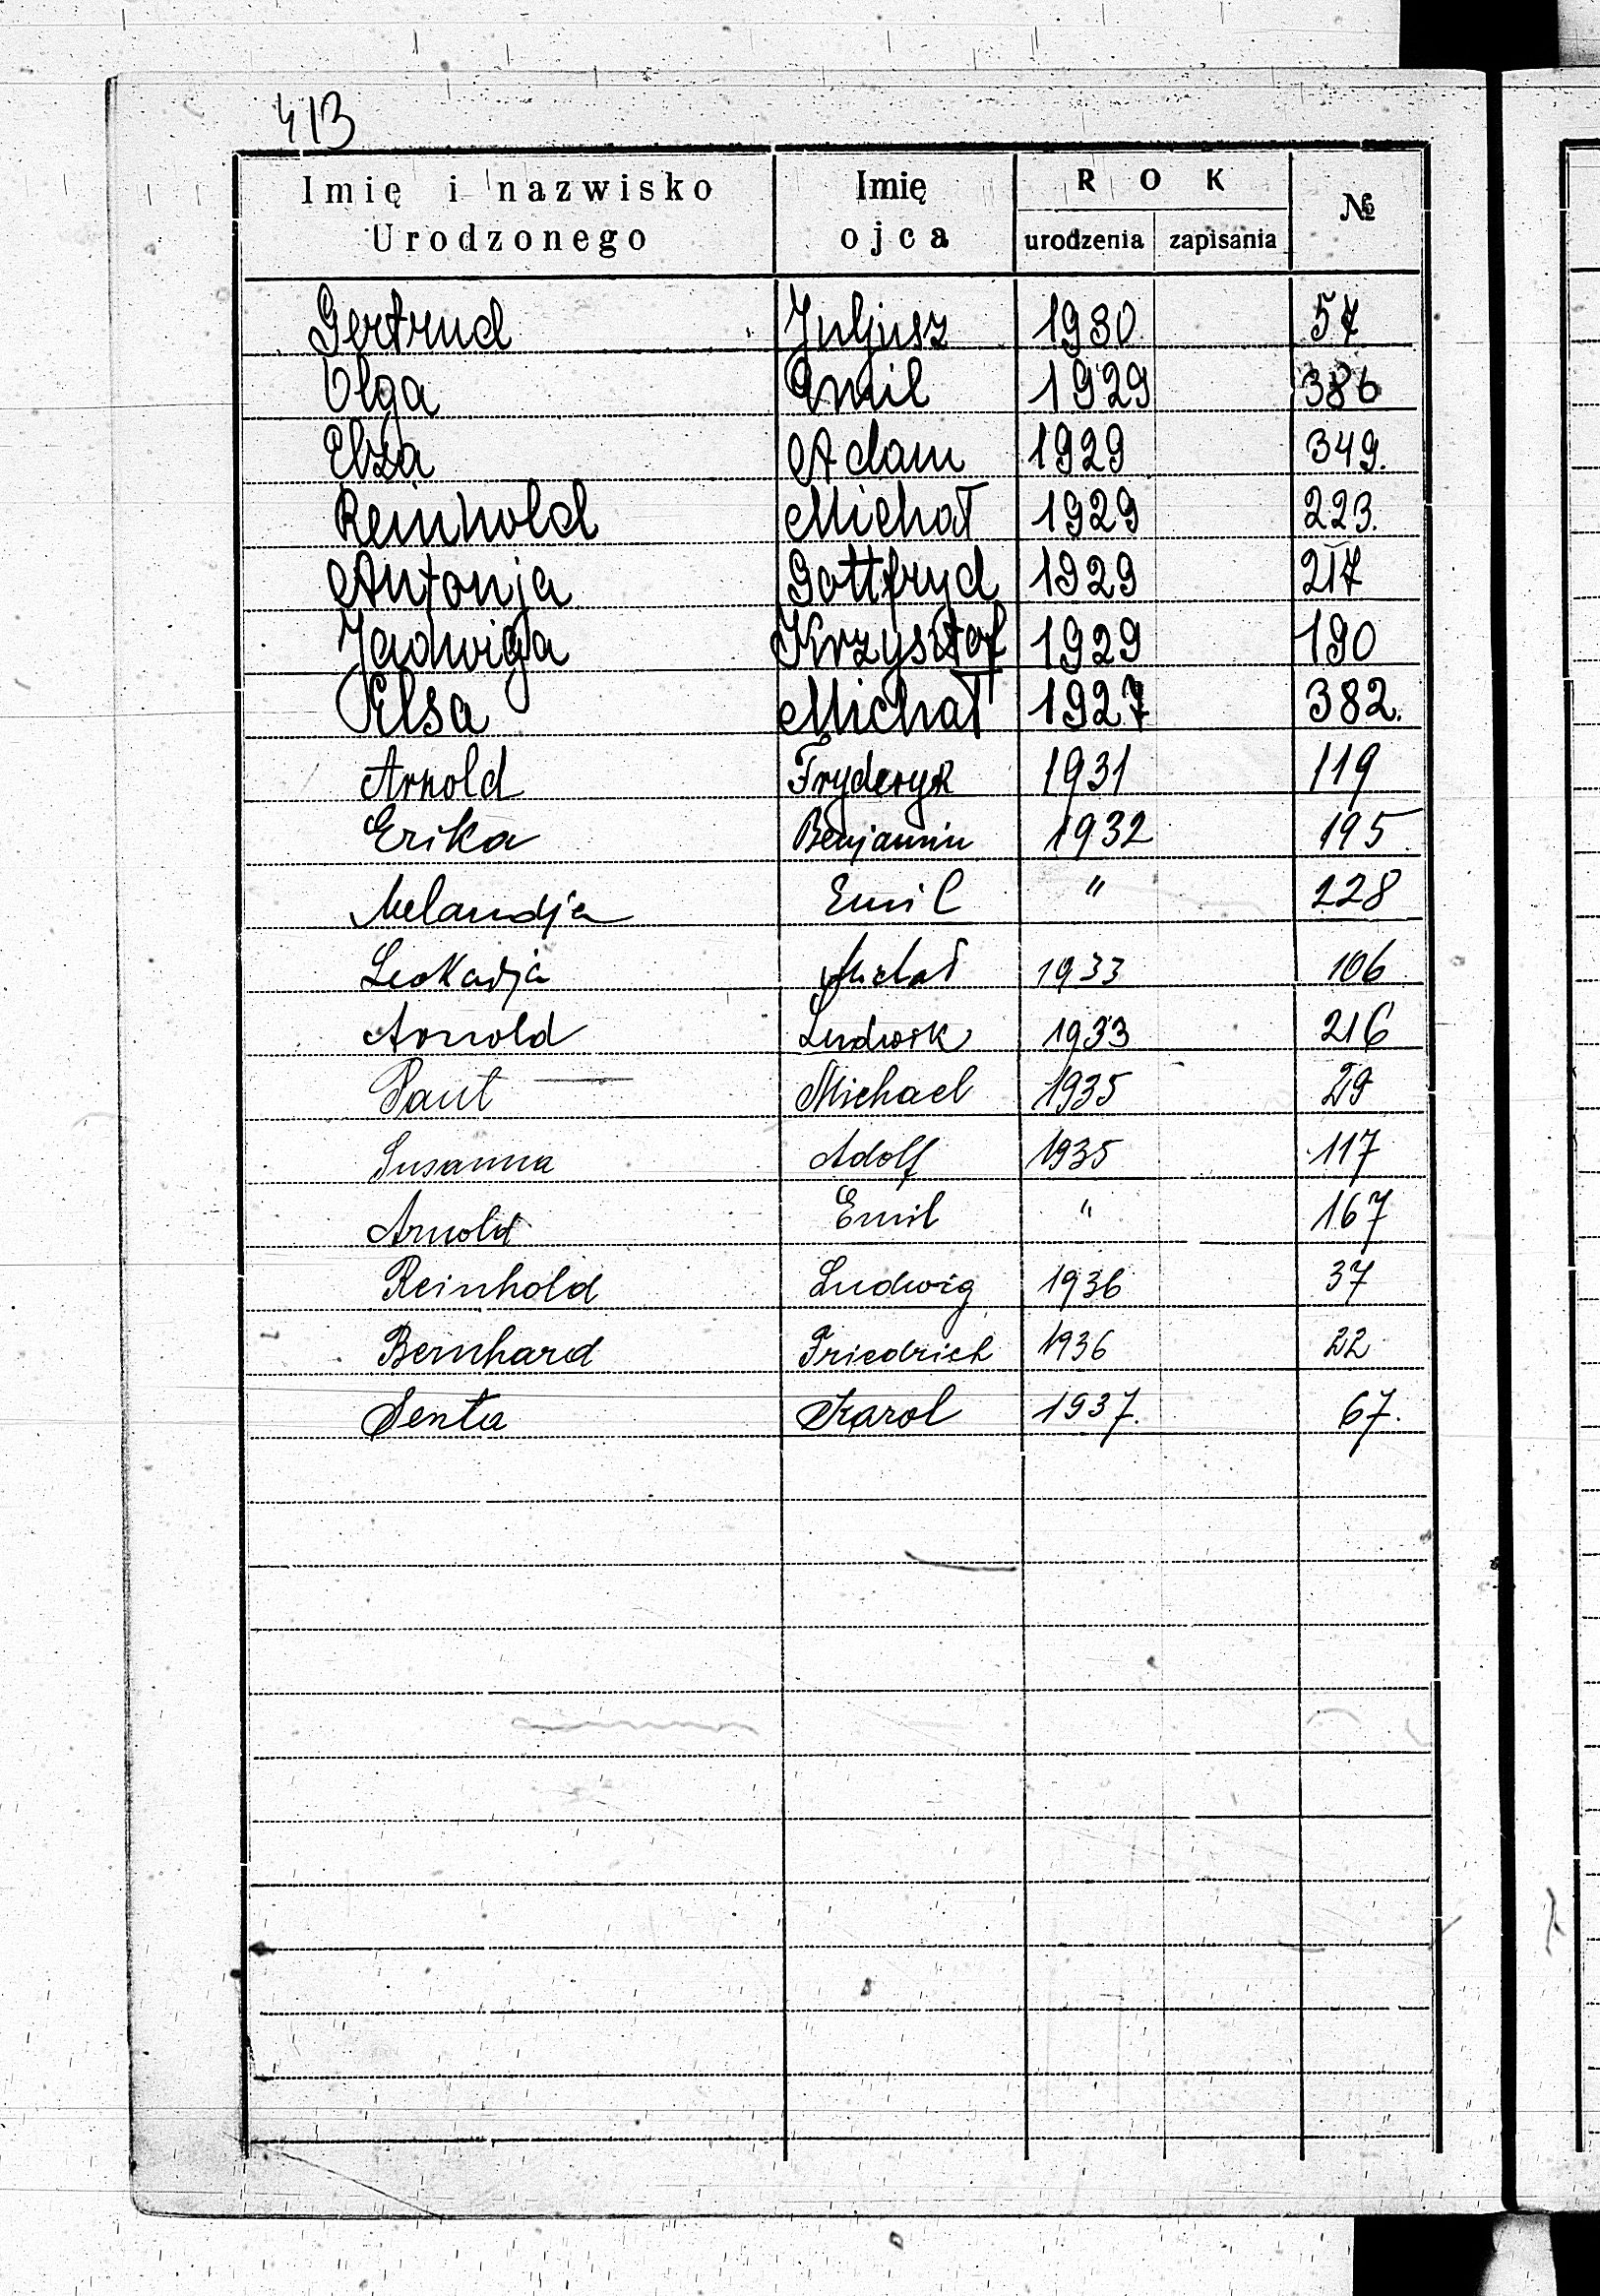 413
Imię i nazwisko Urodzonego Imię ojca ROK urodzenia zapisania №
Gertrud Juljusz 1930 57
Olga Emil 1929 386
Elza Adam 1929 349.
Reinhold Michał 1929 223.
Antonja Gottfryd 1929 217
Jadwiga Krzysztof 1929 190
Elsa Michał 1927 382.
Arnold Fryderyk 1931 119
Erika Benjamin 1932 195
Melandja Emil " 228
Leokadja Michał 1933 106
Arnold Ludwik 1933 216
Paul Michael 1935 29
Susanna Adolf 1935 117
Arnold Emil " 167
Reinhold Ludwig 1936 37
Bernhard Friedrich 1936 22
Senta Karol 1937. 67.